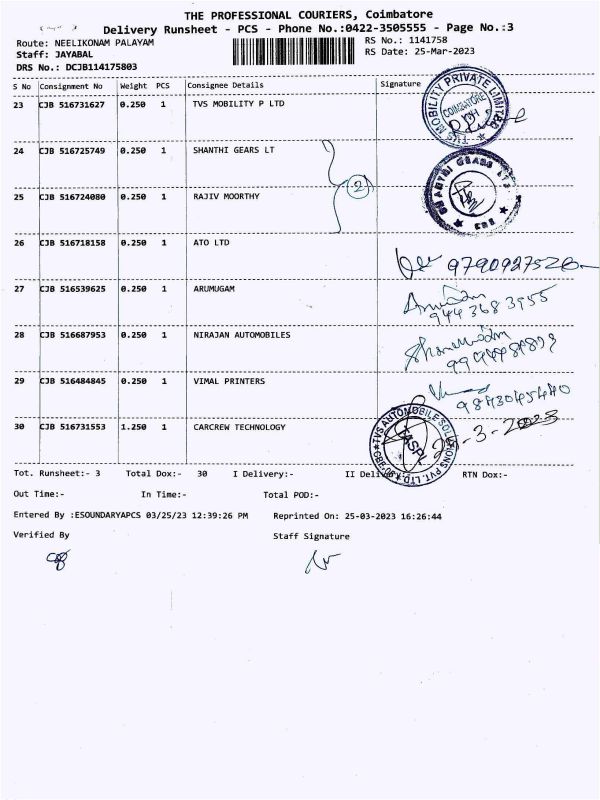 THE PROFESSIONAL COURIERS, Coimbatore
Delivery Runsheet - PCS - Phone No.:0422-3505555 - Page No.:3
Route: NEELIKONAM PALAYAM
RS No.: 1141758
Staff: JAYABAL
RS Date: 25-Mar-2023
DRS No.: DCJB114175803
S No Consignment No Weight PCS Consignee Details Signature
23 CJB 516731627 0.250 1 TVS MOBILITY P LTD
TVS MOBILITY PRIVATE LIMITED COIMBATORE
24 CJB 516725749 0.250 1 SHANTHI GEARS LT
2
SHANTHI GEARS LTD.
25 CJB 516724080 0.250 1 RAJIV MOORTHY
26 CJB 516718158 0.250 1 ATO LTD
27 CJB 516539625 0.250 1 ARUMUGAM
28 CJB 516687953 0.250 1 NIRAJAN AUTOMOBILES
29 CJB 516484845 0.250 1 VIMAL PRINTERS
30 CJB 516731553 1.250 1 CARCREW TECHNOLOGY
TVS AUTOMOBILE SOLUTIONS PVT. LTD
Tot. Runsheet:- 3 Total Dox:- 30 I Delivery:- II Delivery:- RTN Dox:-
Out Time:- In Time:- Total POD:-
Entered By :ESOUNDARYAPCS 03/25/23 12:39:26 PM Reprinted On: 25-03-2023 16:26:44
Verified By Staff Signature